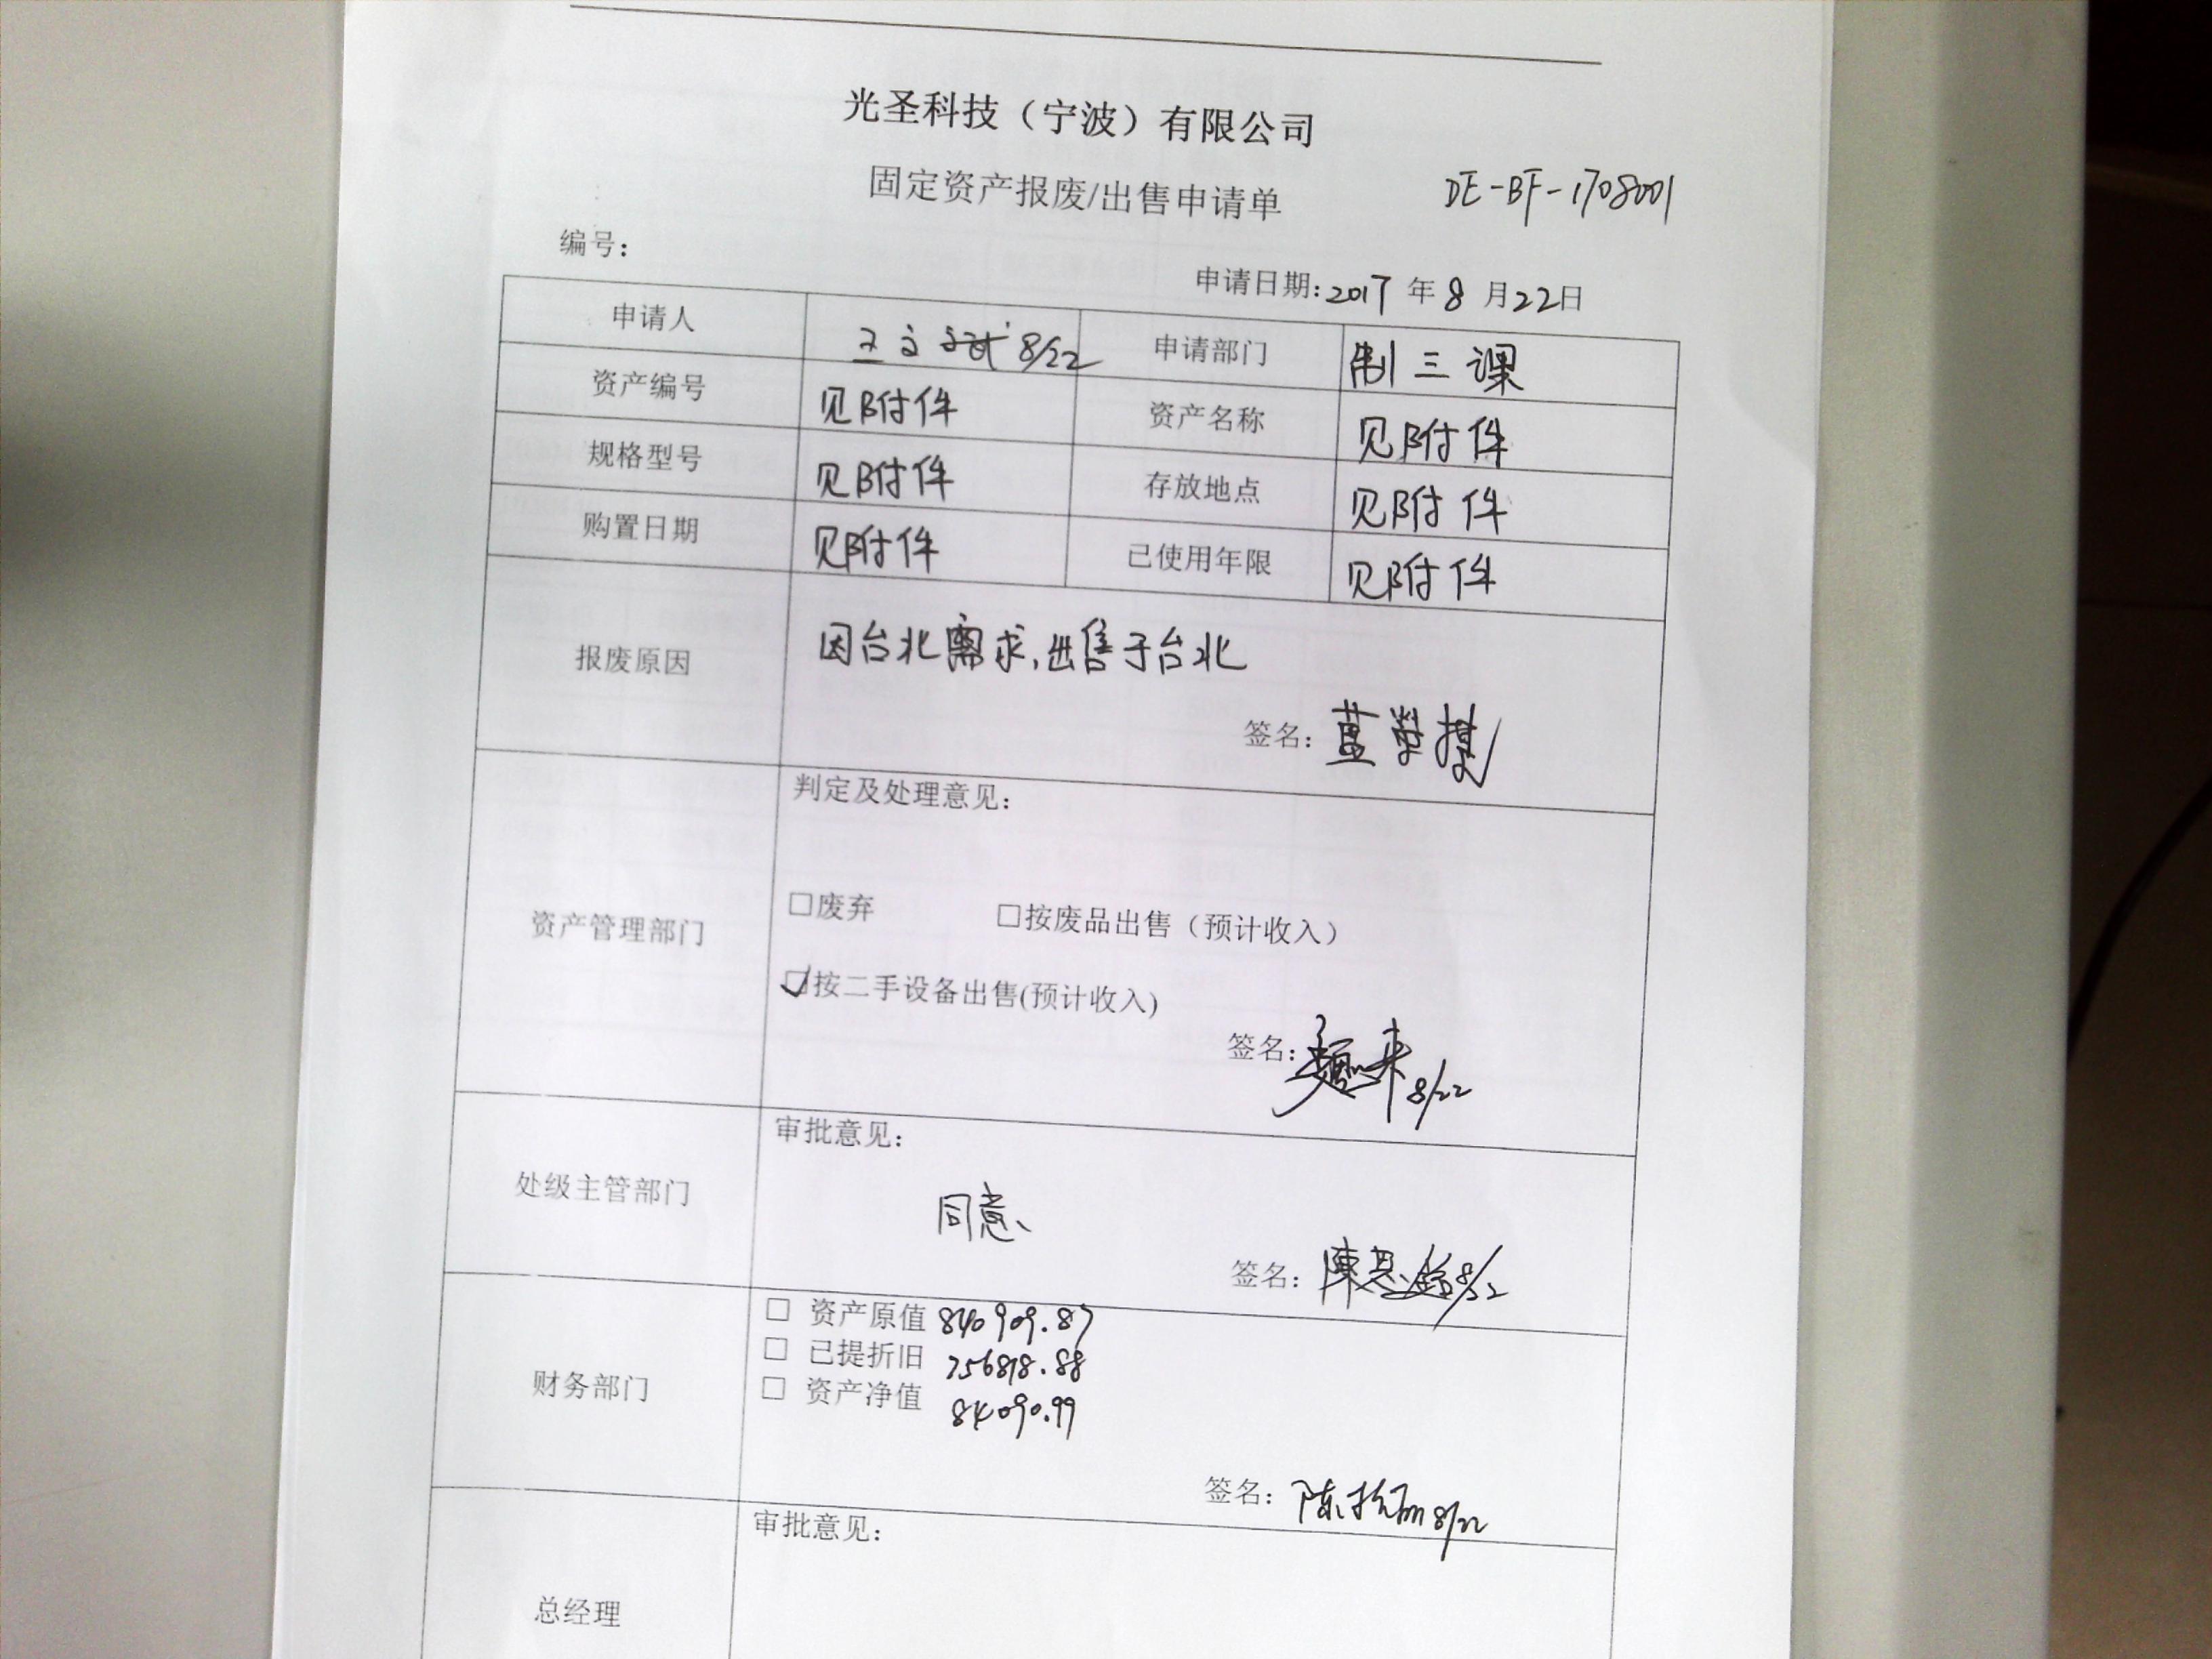 光圣科技（宁波）有限公司
固定资产报废/出售申请单 DE-BF-1708001
编号：
申请日期：2017 年 8 月 22日
申请人 8/22 申请部门 制三课
资产编号 见附件 资产名称 见附件
规格型号 见附件 存放地点 见附件
购置日期 见附件 已使用年限 见附件
报废原因 因台北需求,出售于台北
签名：
资产管理部门 判定及处理意见：
□废弃 □按废品出售（预计收入）
☑按二手设备出售(预计收入)
签名： 8/22
处级主管部门 审批意见：
同意、
签名： 陳 8/22
财务部门 □ 资产原值 840909.87
□ 已提折旧 756818.88
□ 资产净值 84090.99
签名： 陈 8/22
总经理 审批意见：